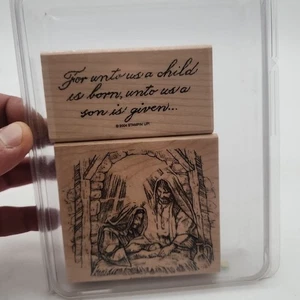 For unto us a child
is born, unto us a
son is given...
© 2004 STAMPIN' UP!